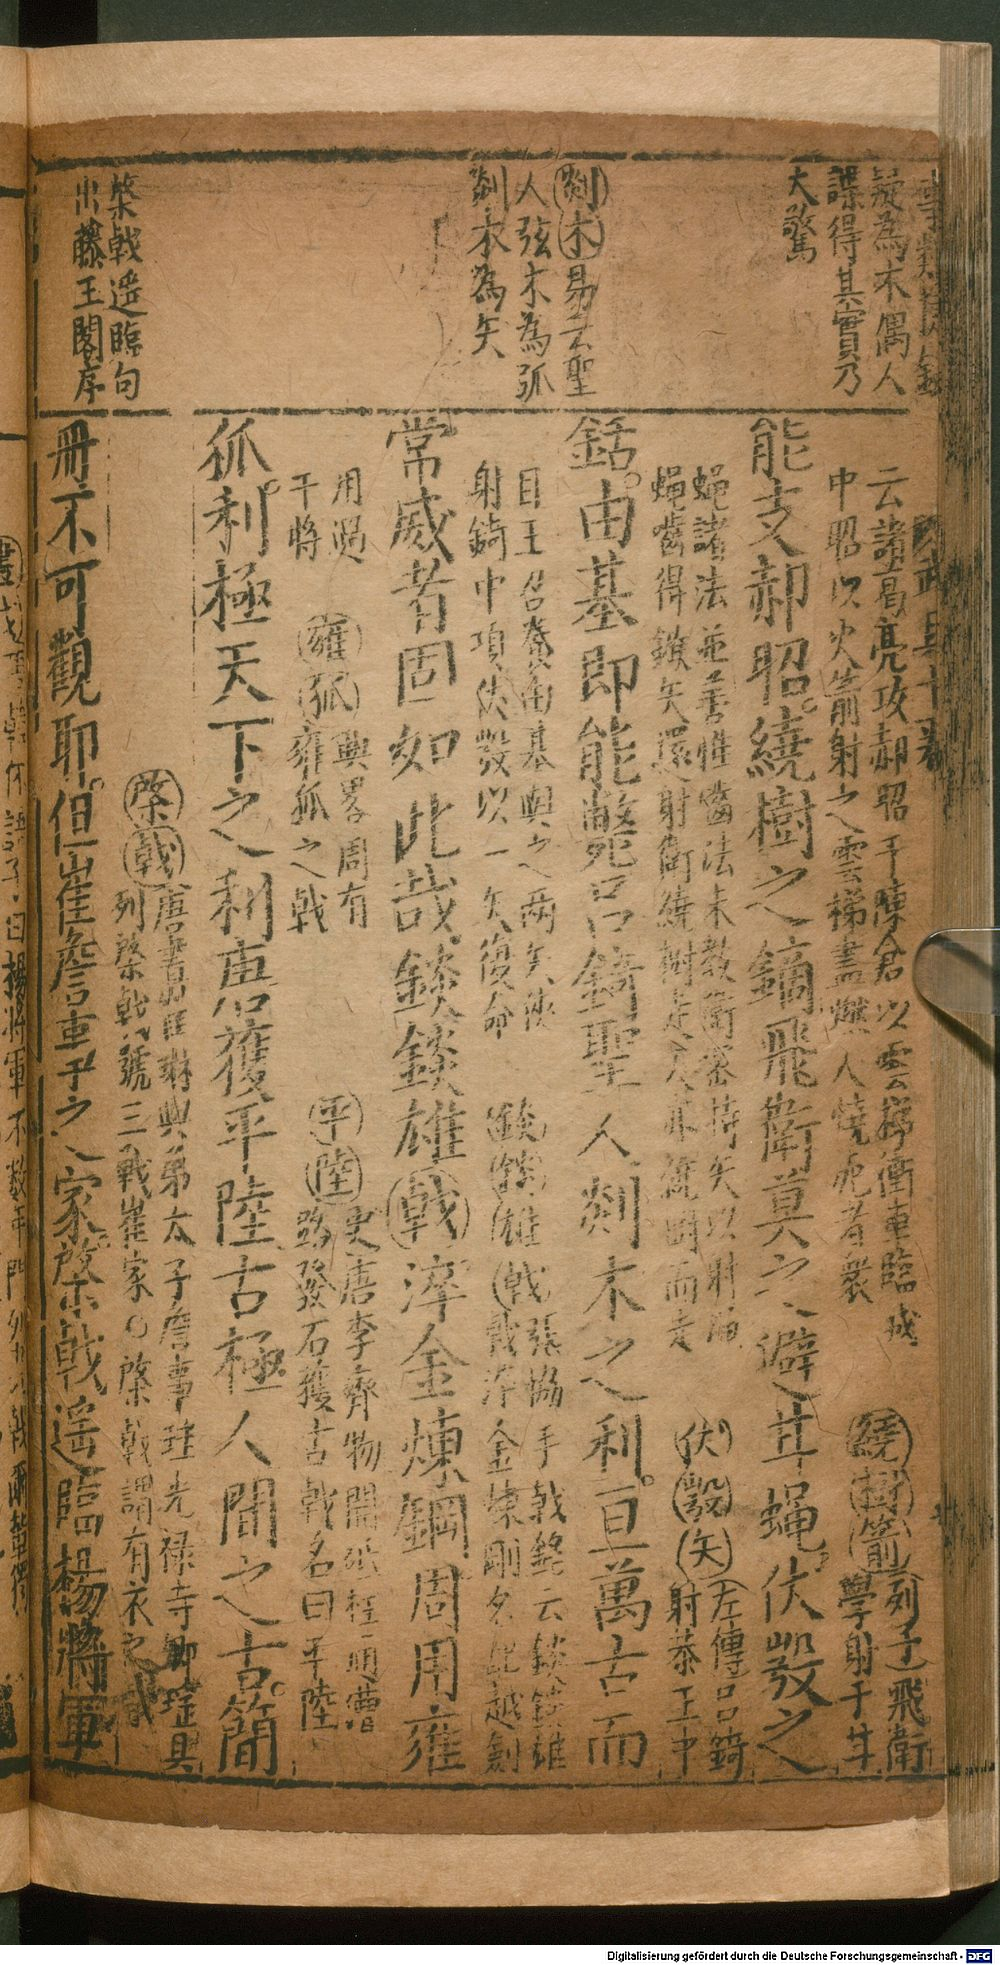 疑為木偶人
諜得其實乃
大驚
剡木易云聖
人弦木為弧
剡木為矢
棨戟遥臨句
出滕王閣序
云諸葛亮攻郝昭于陳倉以雲梯衝車臨城
中昭以火箭射之雲梯盡燃人燒死者衆
繞樹箭列子飛衛
學射于甘
能支郝昭。繞樹之鏑飛衛莫之避甘蝇。伏弢之
蝇諸法並善惟嚙法未教衛密持矢以射蝇
蝇嚙得鏃矢還射衛繞樹走矢亦繞樹而走
伏弢矢左傳吕錡
射恭王中
銛。由基即能斃吕錡聖人剡木之利。亘萬古而
目王召養由基與之兩矢使
射錡中項伏弢以一矢復命
錟錟雄戟張協手戟銘云錟錟雄
戟淬金煉剛名比越劍
常威者固如此哉。錟錟雄戟淬金煉鋼周用雍
用過
干將
雍狐典畧周有
雍狐之戟
平陸史唐李齊物開砥柱通漕
路發石獲古戟名曰平陸
狐利。極天下之利唐獲平陸古極人間之古。簡
棨戟唐書崔琳與弟太子詹事珪光禄寺卿瑶具
列棨戟號三戟崔家○棨戟謂有衣之戟
冊不可觀耶。但崔詹事之家。棨戟遥臨楊將軍
Digitalisierung gefördert durch die Deutsche Forschungsgemeinschaft - DFG